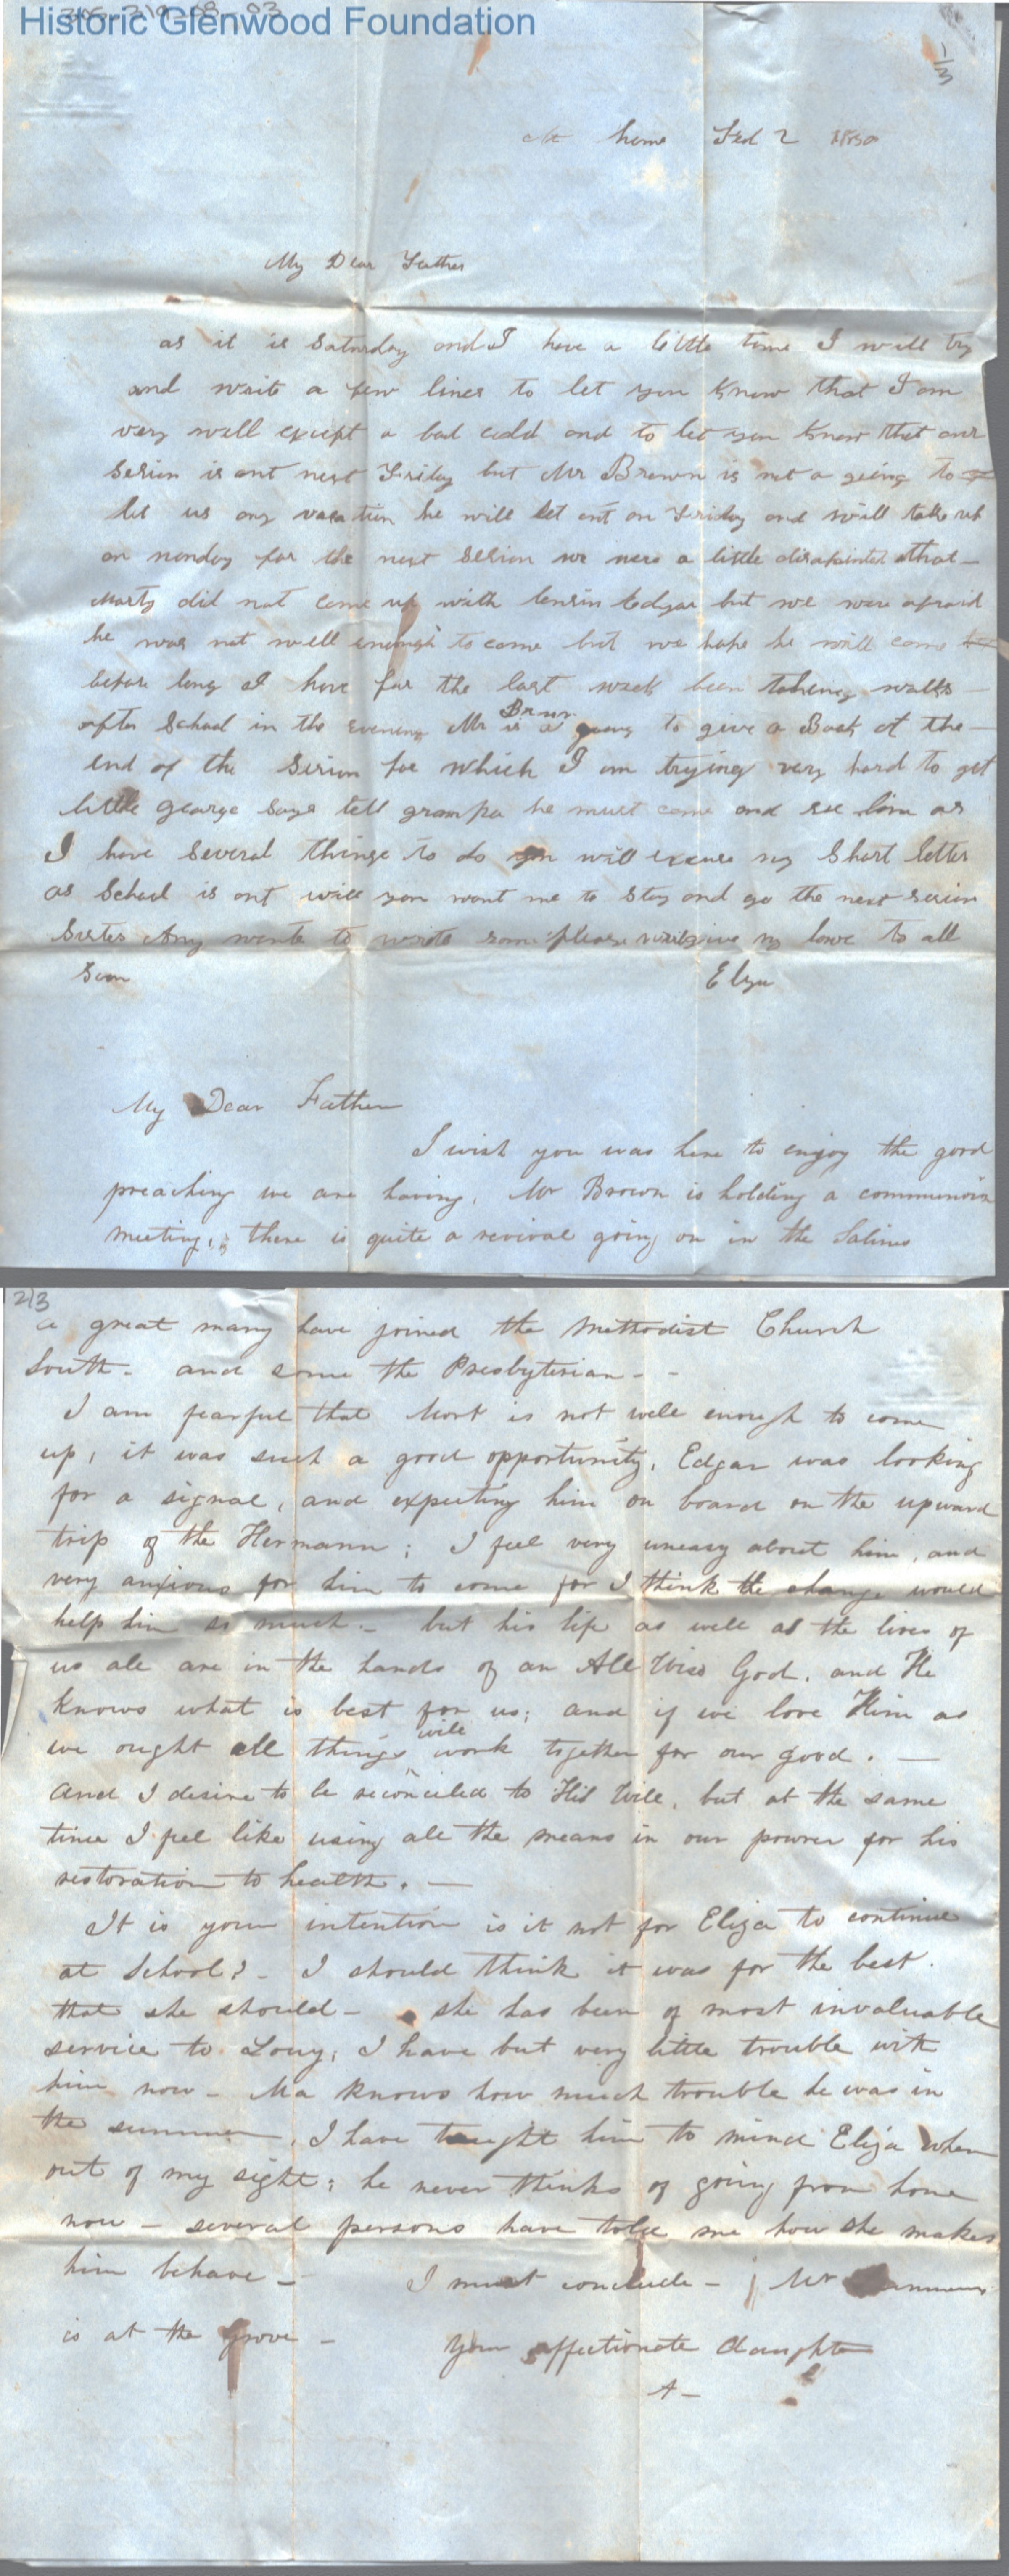 Historic Glenwood Foundation
1/3
At home Feb 2 1850
My Dear Father
as it is Saturday and I have a little time I will try
and write a few lines to let you know that I am
very well except a bad cold and to let you know that our
sesion is out next Friday but Mr Brown is not a going to
let us any vacation he will let out on Friday and will take up
on monday for the next sesion we were a little disapointed that
Morty did not come up with Cousin Edgar but we were afraid
he was not well enough to come but we hope he will come
before long I have for the last week been takeing walks
after School in the evening Mr Brown is a going to give a Book at the
end of the sesion for which I am trying very hard to get
little george says tell grampa he must come and see him as
I have several things to do you will excuse my Short letter
as School is out will you want me to stay and go the next sesion
Sister Amy wants to write some please write give my love to all
Soon
Elza
My Dear Father
I wish you was here to enjoy the good
preaching we are having. Mr Brown is holding a communion
meeting, there is quite a revival going on in the Salines
2/3
a great many have joined the Methodist Church
South - and some the Presbyterian - -
I am fearful that Mort is not well enough to come
up, it was such a good opportunity. Edgar was looking
for a signal, and expecting him on board on the upward
trip of the Hermann; I feel very uneasy about him, and
very anxious for him to come for I think the change would
help him so much - but his life as well as the lives of
us all are in the hands of an All Wise God, and He
knows what is best for us; and if we love Him as
we ought all things will work together for our good. —
And I desire to be reconciled to His Will, but at the same
time I feel like using all the means in our power for his
restoration to health. —
It is your intention is it not for Eliza to continue
at School? - I should think it was for the best
that she should - she has been of most invaluable
service to Lony, I have but very little trouble with
him now - Ma knows how much trouble he was in
the summer, I have taught him to mind Eliza when
out of my sight; he never thinks of going from home
now - several persons have told me how she makes
him behave - I must conclude - Mr
is at the Grove -
Your affectionate daughter
A -